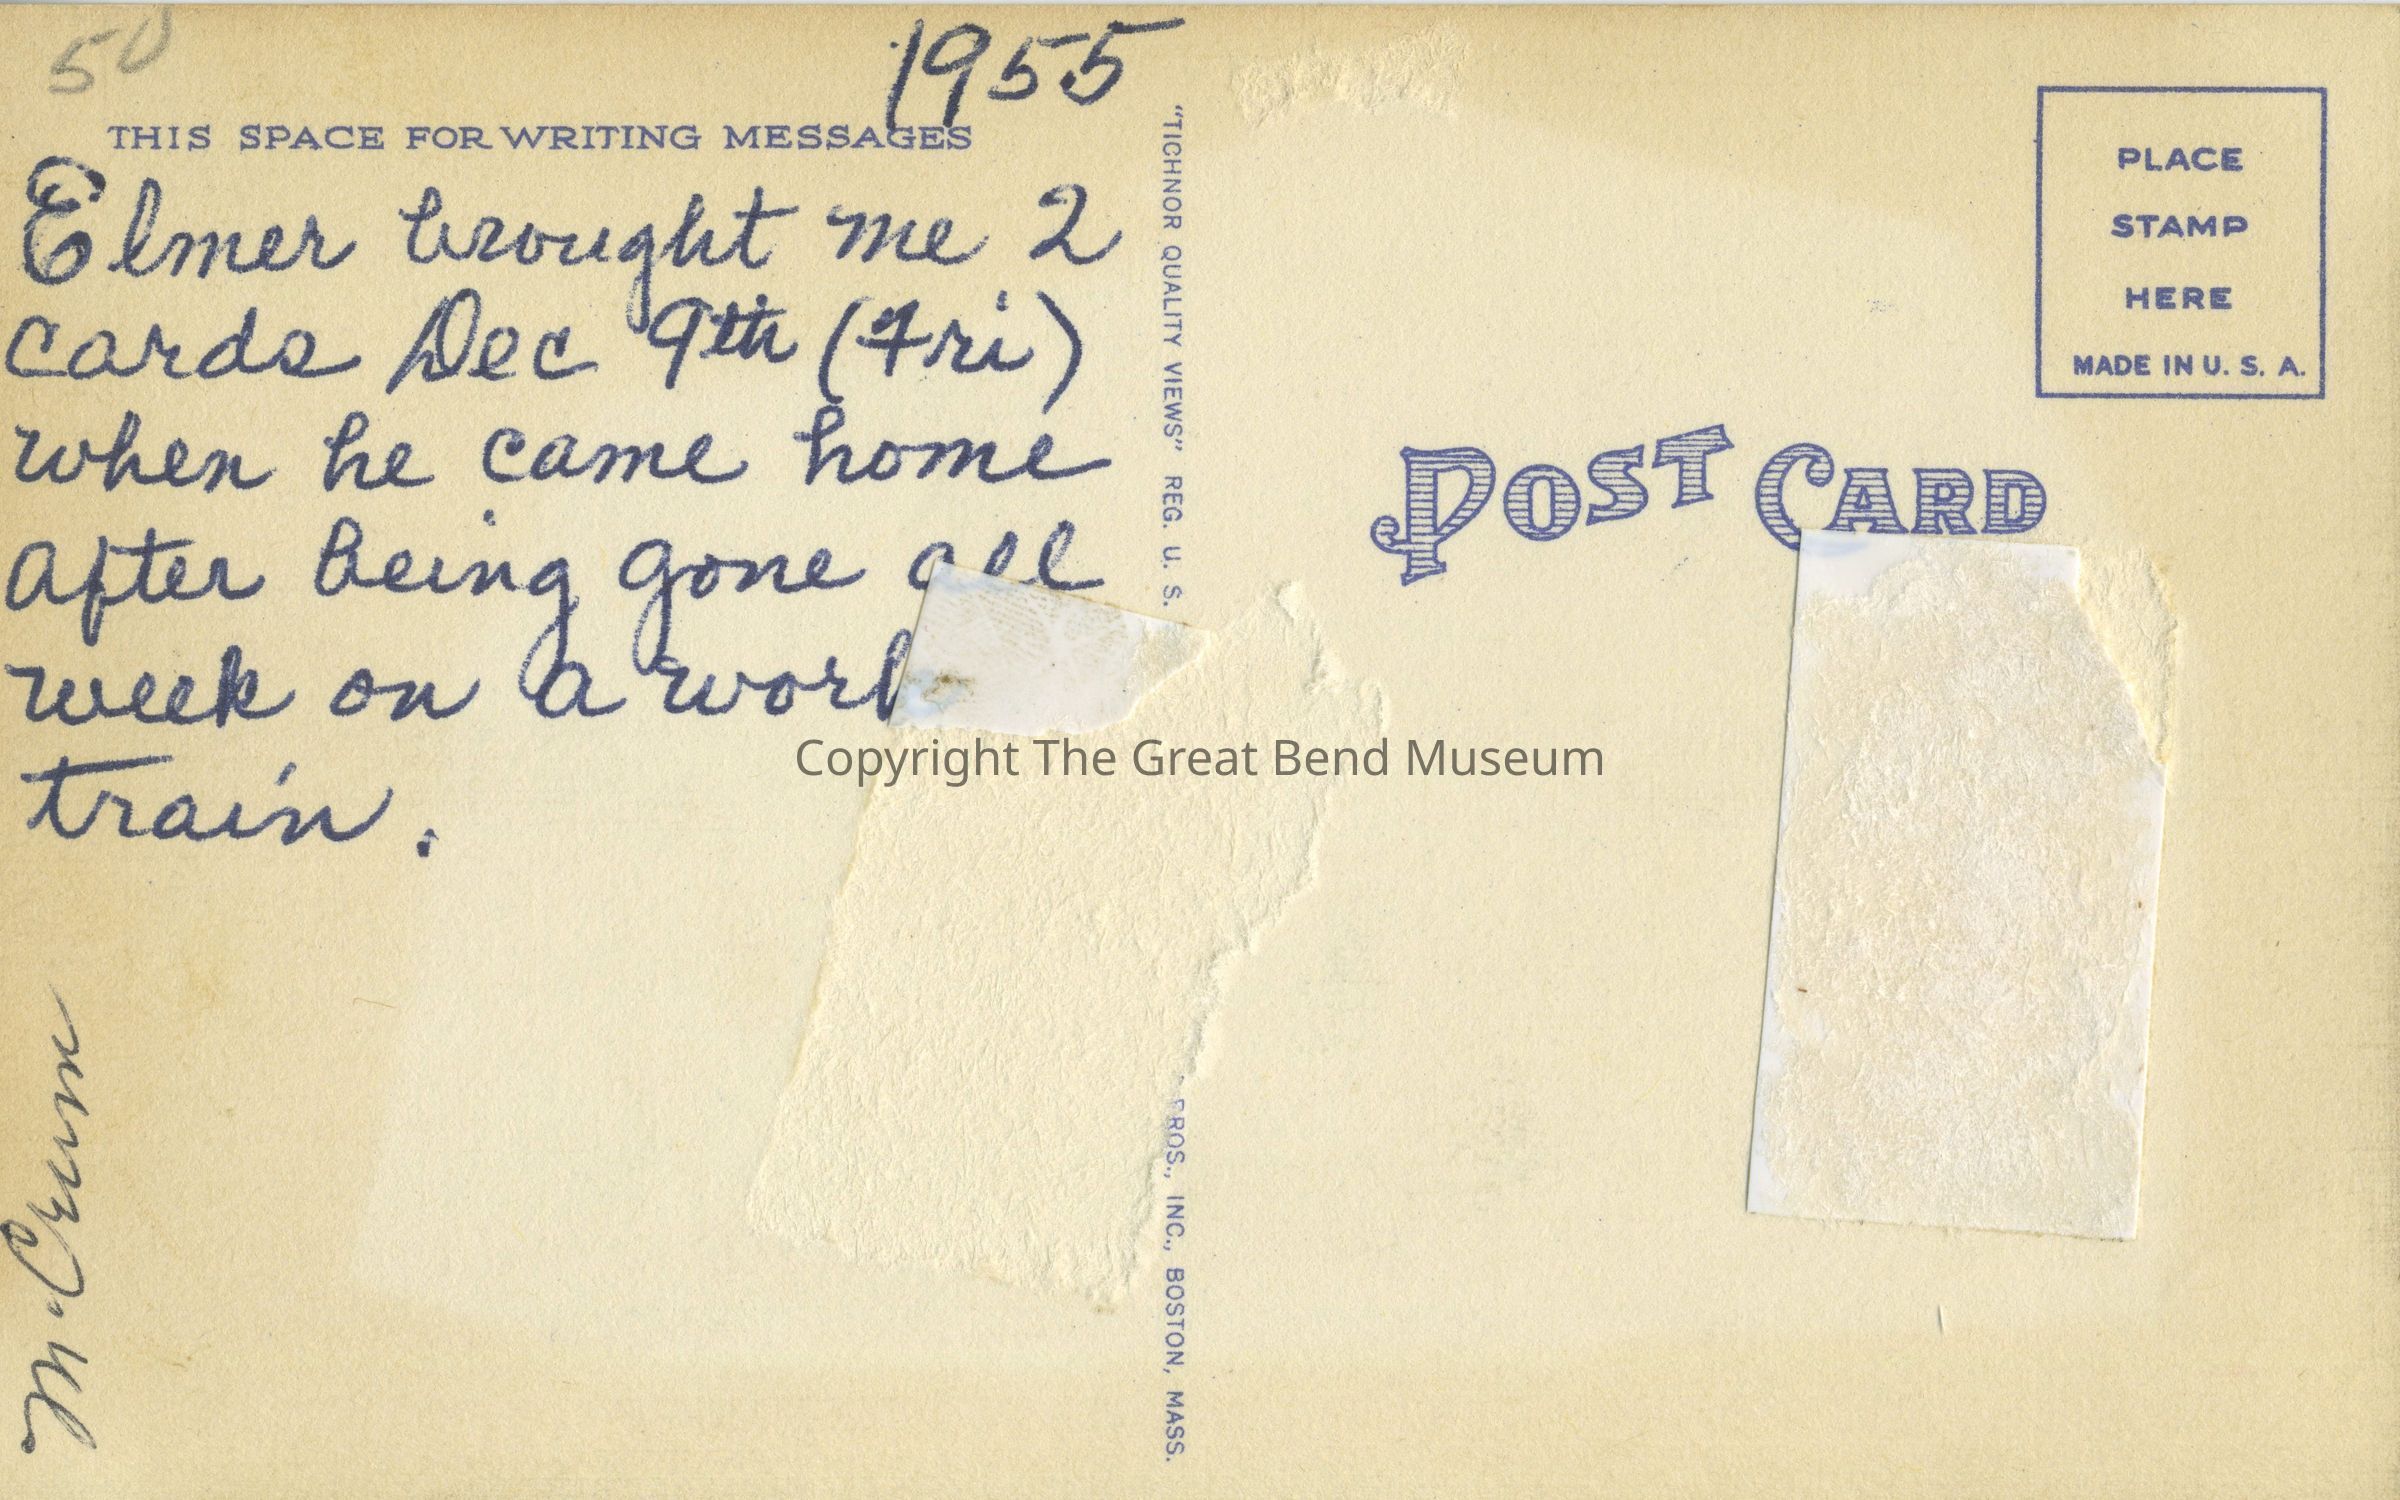 50
1955
THIS SPACE FOR WRITING MESSAGES
Elmer brought me 2
cards Dec 9th (Fri)
when he came home
after being gone all
week on a work
train.
McCrum
"TICHNOR QUALITY VIEWS" REG. U. S.
BROS., INC., BOSTON, MASS.
PLACE
STAMP
HERE
MADE IN U. S. A.
POST CARD
Copyright The Great Bend Museum